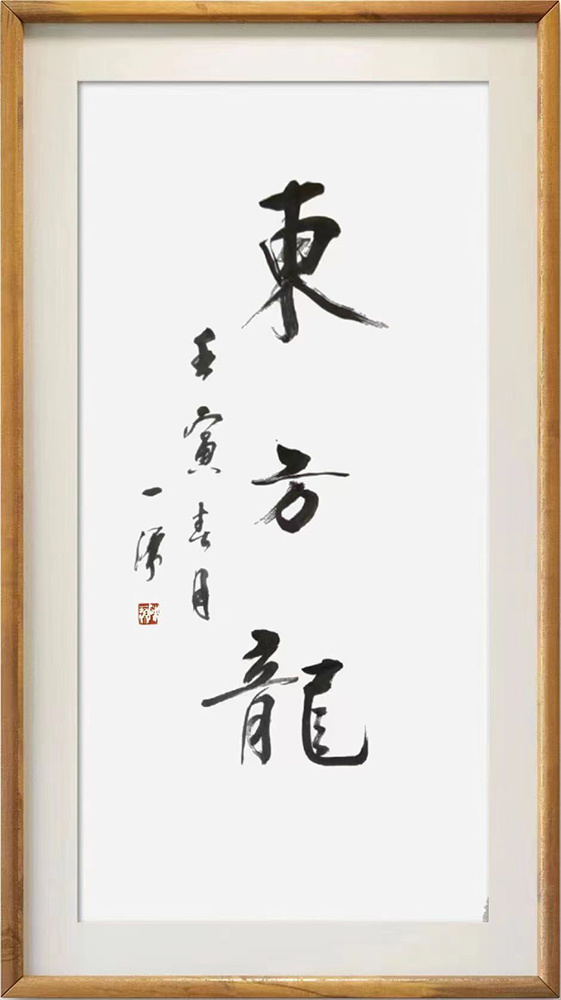 東方龍
壬寅春月
一源